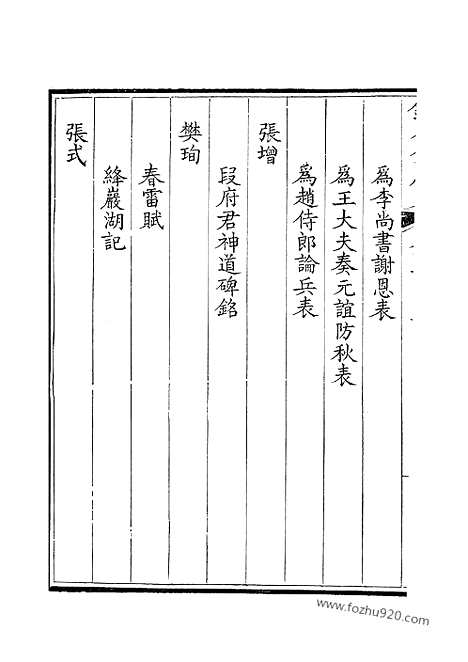 爲李尚書謝恩表
爲王大夫奏元誼防秋表
爲趙侍郎論兵表
張增
段府君神道碑銘
樊珣
春雷賦
絳巖湖記
張式
www.fozhu920.com